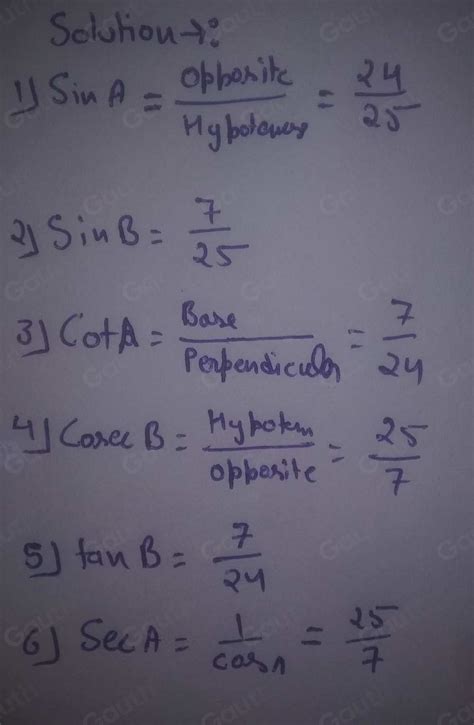 Solution→:
1) Sin A = Opposite / Hypotenuse = 24 / 25
2) Sin B = 7 / 25
3) Cot A = Base / Perpendicular = 7 / 24
4) Cosec B = Hypoten / opposite = 25 / 7
5) tan B = 7 / 24
6) Sec A = 1 / cos A = 25 / 7
Gauth